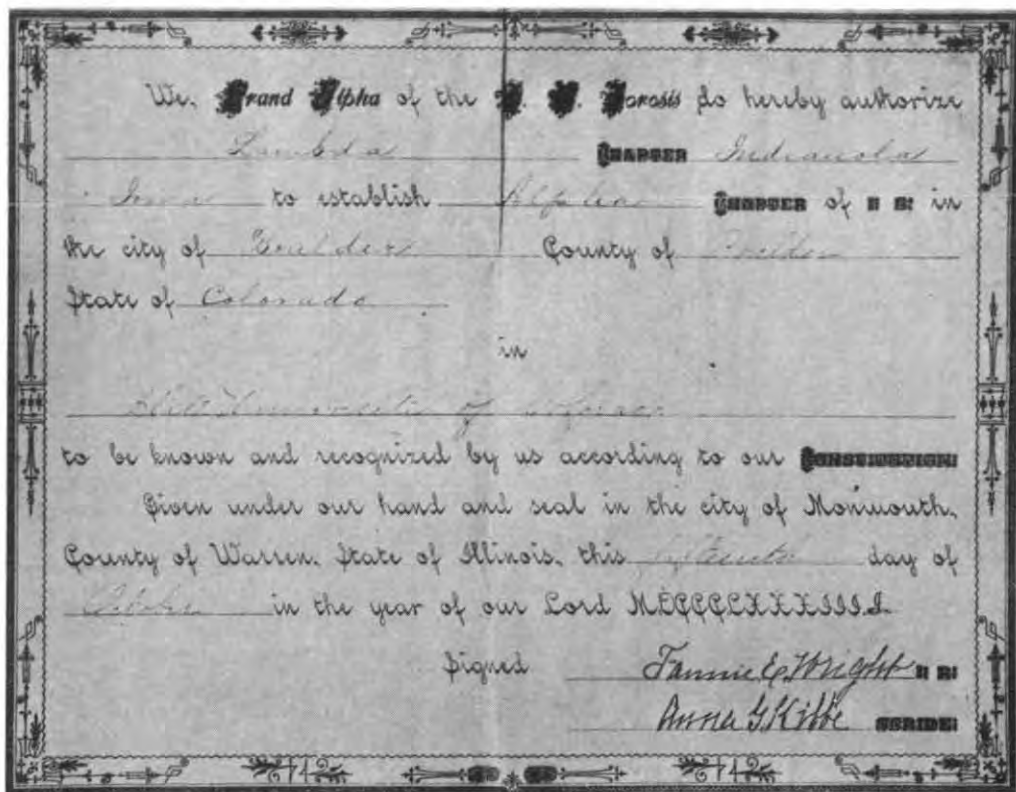 We, Grand Alpha of the I. C. Sorosis do hereby authorize
Lambda CHAPTER Indianola
Iowa to establish Alpha CHAPTER of in
the city of Boulder County of Boulder
State of Colorado
in
University of
to be known and recognized by us according to our CONSTITUTION:
Given under our hand and seal in the city of Monmouth,
County of Warren, State of Illinois, this day of
October in the year of our Lord MDCCCLXXXIIII.
Signed Fannie E. Wright
Anna G. Kibbe SCRIBE: